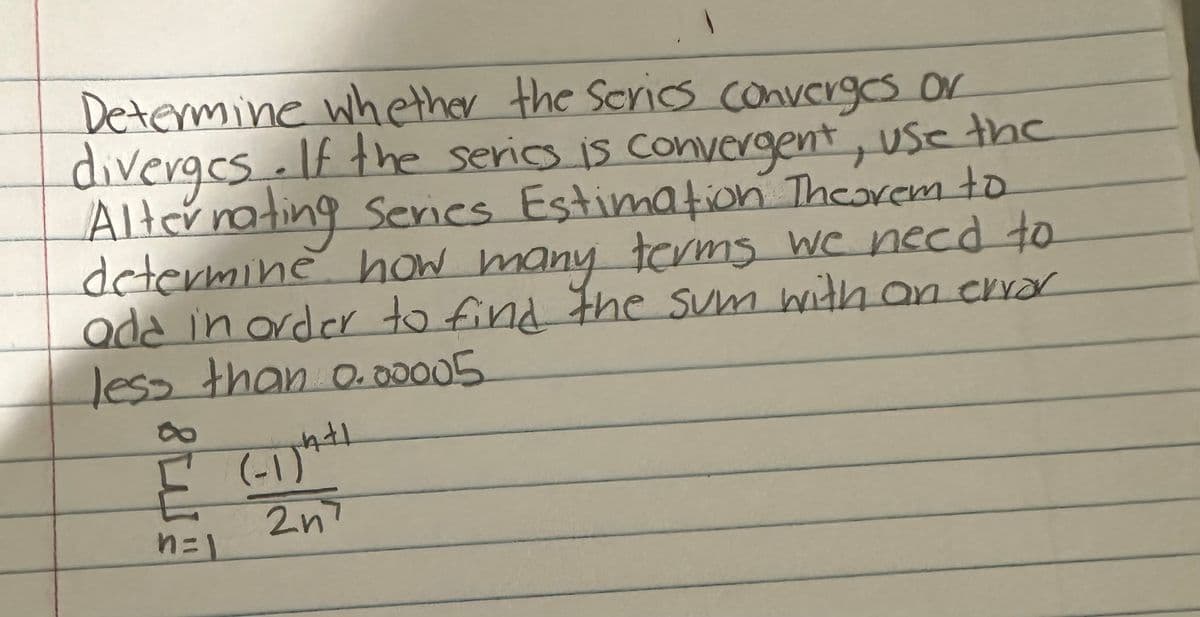 Determine whether the series converges or
diverges. If the series is convergent, use the
Alternating Series Estimation Theorem to
determine how many terms we need to
add in order to find the sum with an error
less than 0.00005
∞
Σ (-1)^{n+1}
2n^7
n=1